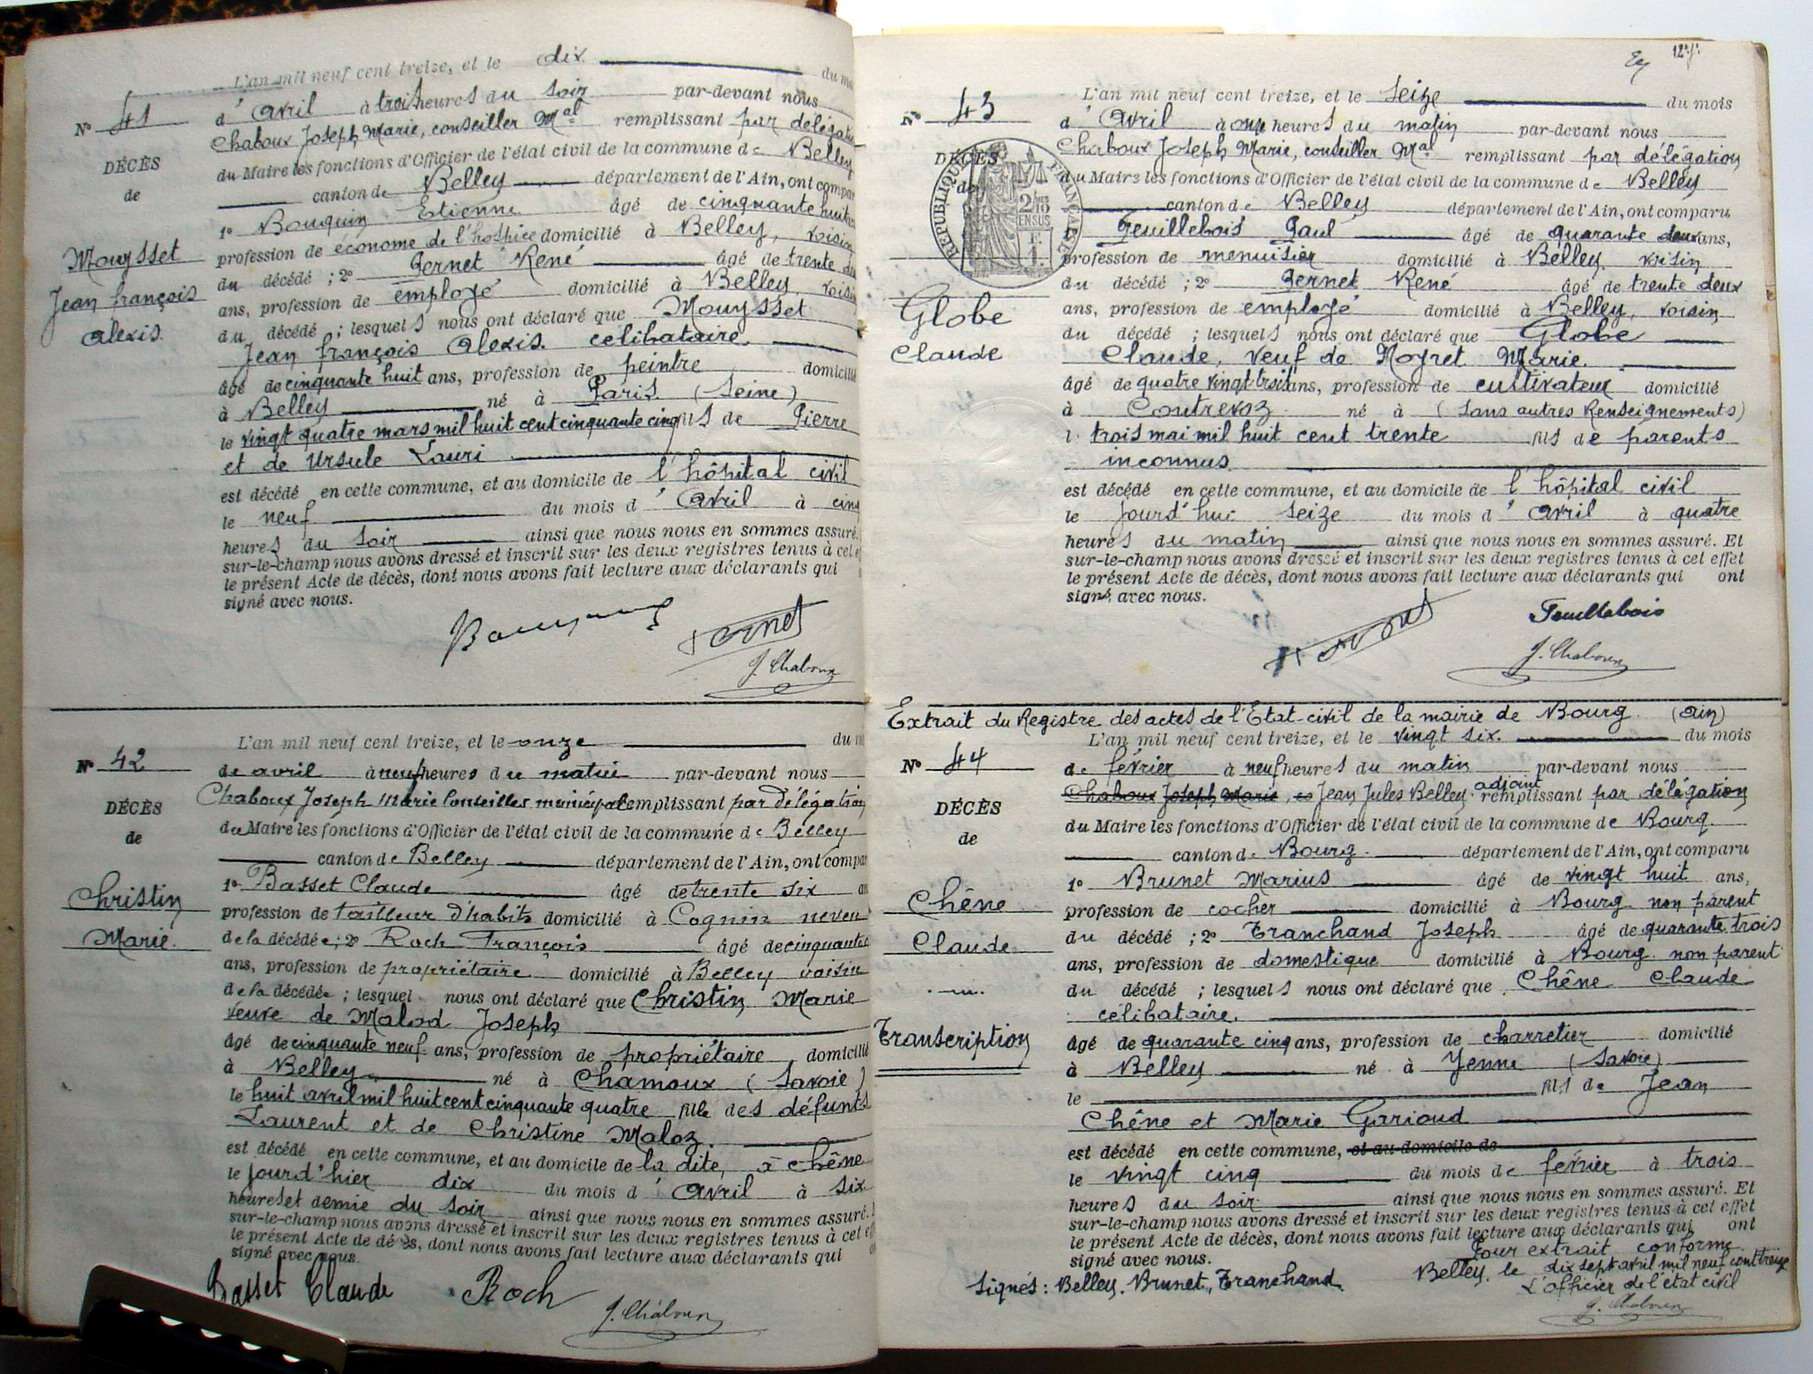 L'an mil neuf cent treize, et le dix du m
N° 41
d'avril à trois heures du soir par-devant nous
Chaboux Joseph Marie, conseiller Mal remplissant par délégation
DÉCÈS
du Maire les fonctions d'Officier de l'état civil de la commune de Belley
de
canton de Belley département de l'Ain, ont compar
1° Bouquin Etienne âgé de cinquante huit
Mouysset
profession de économe de l'hospice domicilié à Belley, voisin
du décédé ; 2° Pernet René âgé de trente d
Jean françois
ans, profession de employé domicilié à Belley, voisin
Alexis.
du décédé ; lesquels nous ont déclaré que Mouysset
Jean françois Alexis. celibataire
âgé de cinquante huit ans, profession de peintre domicilié
à Belley né à Paris (Seine)
le vingt quatre mars mil huit cent cinquante cinq fils de Pierre
et de Ursule Lauri
est décédé en cette commune, et au domicile de l'hôpital civil
le neuf du mois d'avril à cinq
heures du soir ainsi que nous nous en sommes assuré.
sur-le-champ nous avons dressé et inscrit sur les deux registres tenus à cet e
le présent Acte de décès, dont nous avons fait lecture aux déclarants qui
signé avec nous.
Pernet
J. Chaboux
L'an mil neuf cent treize, et le onze du m
N° 42
de avril à neuf heures du matin par-devant nous
Chaboux Joseph Marie Conseiller municipal remplissant par délégation
DÉCÈS
du Maire les fonctions d'Officier de l'état civil de la commune de Belley
de
canton de Belley département de l'Ain, ont compar
1° Basset Claude âgé de trente six an
Christin
profession de tailleur d'habits domicilié à Cognin neveu
Marie.
de la décédée ; 2° Roch François âgé de cinquante
ans, profession de propriétaire domicilié à Belley voisin
de la décédée ; lesquel nous ont déclaré que Christin Marie
veuve de Malod Joseph
âgé de cinquante neuf ans, profession de propriétaire domicilié
à Belley né à Chamoux (Savoie)
le huit avril mil huit cent cinquante quatre fille des défunts
Laurent et de Christine Maloz.
est décédé en cette commune, et au domicile de la dite, à Chêne
le jourd'hier dix du mois d'avril à six
heures et demie du soir ainsi que nous nous en sommes assuré.
sur-le-champ nous avons dressé et inscrit sur les deux registres tenus à cet e
le présent Acte de décès, dont nous avons fait lecture aux déclarants qui
signé avec nous.
Basset Claude Roch
J. Chaboux
L'an mil neuf cent treize, et le seize du mois
N° 43
d'avril à onze heures du matin par-devant nous
Chaboux Joseph Marie, conseiller Mal remplissant par délégation
DÉCÈS
du Maire les fonctions d'Officier de l'état civil de la commune de Belley
de
RÉPUBLIQUE FRANÇAISE
2/10 EN SUS
canton de Belley département de l'Ain, ont comparu
Feuillebois Paul âgé de quarante deux ans,
profession de menuisier domicilié à Belley voisin
du décédé ; 2° Pernet René âgé de trente deux
Globe
ans, profession de employé domicilié à Belley, voisin
Claude
du décédé ; lesquels nous ont déclaré que Globe
Claude, veuf de Moyret Marie.
âgé de quatre vingt trois ans, profession de cultivateur domicilié
à Contrevoz né à (sans autres renseignements)
l trois mai mil huit cent trente fils de parents
inconnus
est décédé en cette commune, et au domicile de l'hôpital civil
le jourd'hui seize du mois d'avril à quatre
heures du matin ainsi que nous nous en sommes assuré. Et
sur-le-champ nous avons dressé et inscrit sur les deux registres tenus à cet effet
le présent Acte de décès, dont nous avons fait lecture aux déclarants qui ont
signé avec nous.
Pernet
Feuillebois
J. Chaboux
Extrait du Registre des actes de l'Etat-civil de la mairie de Bourg (Ain)
L'an mil neuf cent treize, et le vingt six. du mois
N° 44
de février à neuf heures du matin par-devant nous
Chaboux Joseph Marie, Jean Jules Belley adjoint remplissant par délégation
DÉCÈS
du Maire les fonctions d'Officier de l'état civil de la commune de Bourg.
de
canton de Bourg département de l'Ain, ont comparu
1° Brunet Marius âgé de vingt huit ans,
Chêne
profession de cocher domicilié à Bourg non parent
Claude
du décédé ; 2° Tranchand Joseph âgé de quarante trois
ans, profession de domestique domicilié à Bourg non parent
du décédé ; lesquels nous ont déclaré que Chêne Claude
celibataire.
Transcription
âgé de quarante cinq ans, profession de charretier domicilié
à Belley né à Yenne (Savoie)
le fils de Jean
Chêne et Marie Garioud
est décédé en cette commune, et au domicile de
le vingt cinq du mois de février à trois
heures du soir ainsi que nous nous en sommes assuré. Et
sur-le-champ nous avons dressé et inscrit sur les deux registres tenus à cet effet
le présent Acte de décès, dont nous avons fait lecture aux déclarants qui ont
signé avec nous.
Pour extrait conforme
Signés : Belley, Brunet, Tranchand
Belley, le dix sept avril mil neuf cent treize
L'officier de l'état civil
J. Chaboux